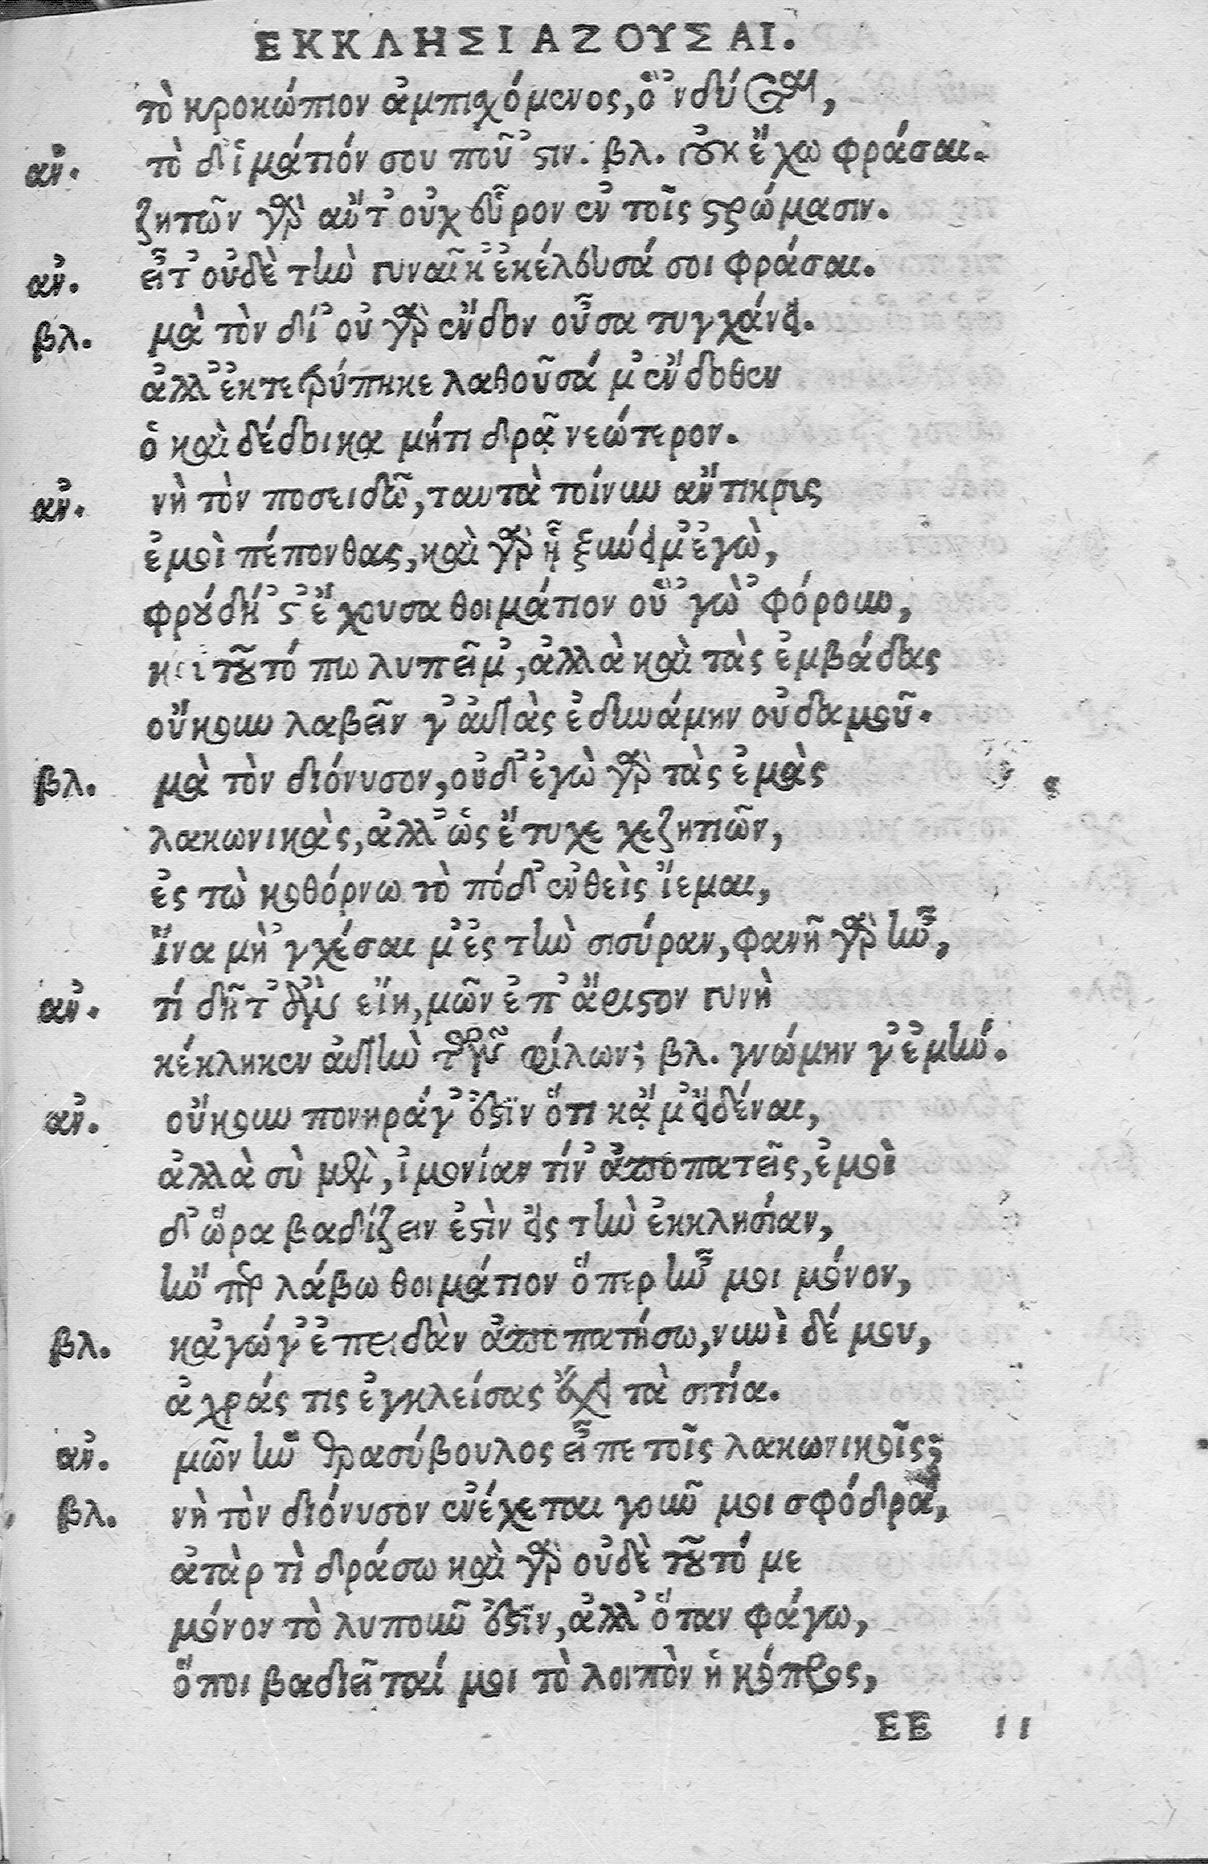 ΕΚΚΛΗΣΙΑΖΟΥΣΑΙ.
τὸ κροκώπιον ἀμπισχόμενος, ὃ ᾿νδύεται,
αν. τὸ δ᾿ ἱμάτιόν σου ποῦ ᾿ςιν. βλ. οὐκ ἔχω φράσαι.
ζητῶν γὰρ αὔτ᾿ οὐχ εὗρον ἐν τοῖς ςρώμασιν.
αν. εἶτ᾿ οὐδὲ τὴν γυναῖκ᾿ ἐκέλευσά σοι φράσαι.
βλ. μὰ τὸν δί᾿ οὐ γὰρ ἔνδον οὖσα τυγχάνει.
ἀλλ᾿ ἐκτετρύπηκε λαθοῦσά μ᾿ ἔνδοθεν
ὁ καὶ δέδοικα μήτι δρᾷ νεώτερον.
αν. νὴ τὸν ποσειδῶ, ταυτὰ τοίνυν ἄντικρις
ἐμοὶ πέπονθας, καὶ γὰρ ᾗ ξυνείμ᾿ ἐγὼ,
φρούδη ᾿ς᾿ ἔχουσα θοιμάτιον οὗ ᾿γὼ ᾿φόρουν,
κοὐ τοῦτό πω λυπεῖ μ᾿, ἀλλὰ καὶ τὰς ἐμβάδας
οὔκουν λαβεῖν γ᾿ αὐτὰς ἐδυνάμην οὐδαμοῦ.
βλ. μὰ τὸν διόνυσον, οὐδ᾿ ἐγὼ γὰρ τὰς ἐμὰς
λακωνικὰς, ἀλλ᾿ ὡς ἔτυχε χεζητιῶν,
ἐς τὼ κοθόρνω τὸ πόδ᾿ ἐνθεὶς ἵεμαι,
ἵνα μὴ ᾿γχέσαι μ᾿ ἐς τὴν σισύραν, φανῆ γὰρ ἦν,
αν. τί δῆτ᾿ ἂν εἴη, μῶν ἐπ᾿ ἄριςον γυνὴ
κέκληκεν αὐτὴν τῶν φίλων; βλ. γνώμην γ᾿ ἐμήν.
αν. οὔκουν πονηρά γ᾿ ἐςὶν ὅτι κἄμ᾿ εἰδέναι,
ἀλλὰ σὺ μὲν, ἱμονίαν τίν᾿ ἀποπατεῖς, ἐμοὶ
δ᾿ ὥρα βαδίζειν ἐςὶν εἰς τὴν ἐκκλησίαν,
ἤν περ λάβω θοιμάτιον ὅπερ ἦν μοι μόνον,
βλ. κἀγώγ᾿ ἐπειδὰν ἀποπατήσω, νυνὶ δέ μου,
ἀχράς τις ἐγκλείσας ἔχει τὰ σιτία.
αν. μῶν ἣν θρασύβουλος εἶπε τοῖς λακωνικοῖς;
βλ. νὴ τὸν διόνυσον ἐνέχεται γοῦν μοι σφόδρα,
ἀτὰρ τὶ δράσω καὶ γὰρ οὐδὲ τοῦτό με
μόνον τὸ λυποῦν ἐςὶν, ἀλλ᾿ ὅταν φάγω,
ὅποι βαδιεῖταί μοι τὸ λοιπὸν ἡ κόπρος,
ΕΕ ιι